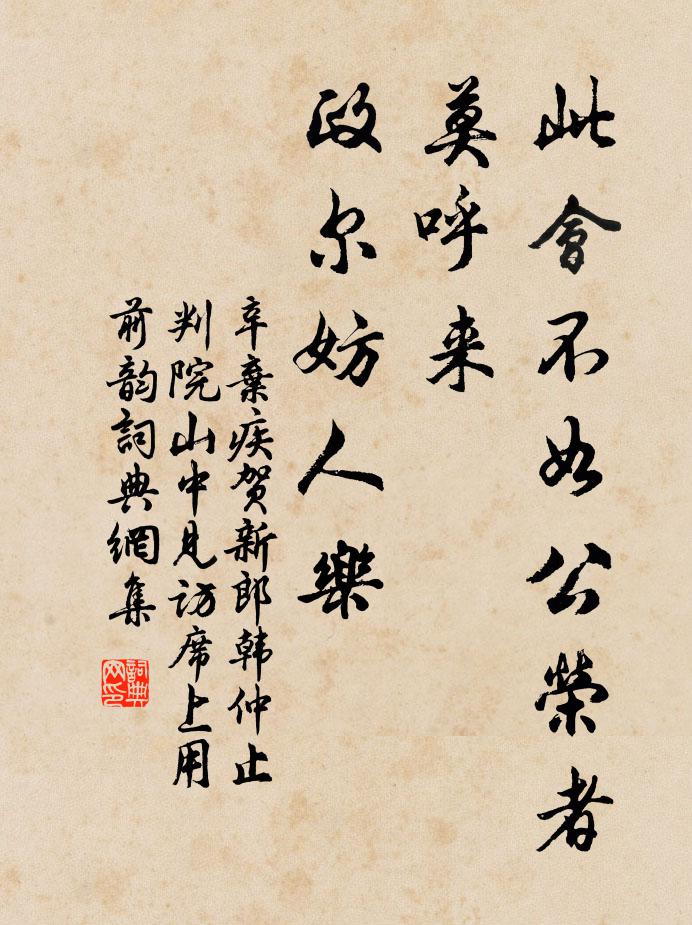 此會不如公榮者
莫呼来
政尔妨人樂
辛棄疾贺新郎韩仲止
判院山中見访席上用
前韵詞典網集
詞典网印